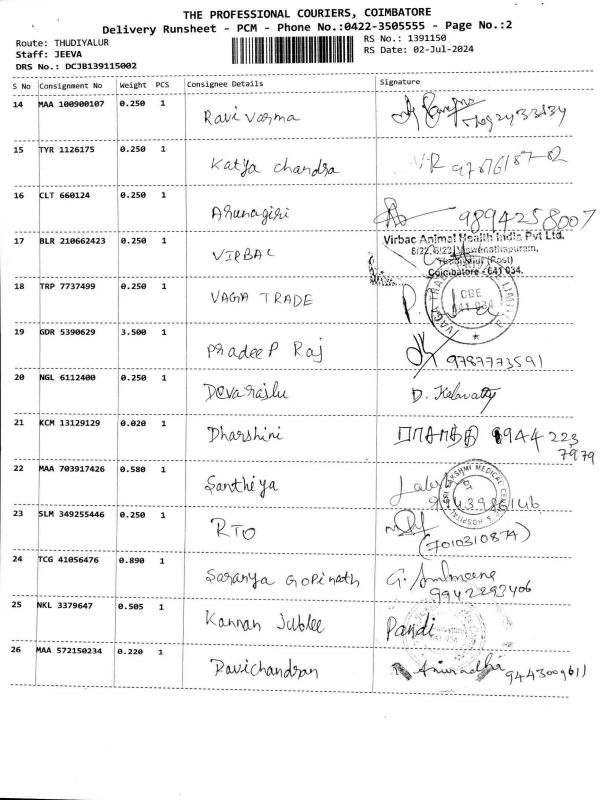 THE PROFESSIONAL COURIERS, COIMBATORE
Delivery Runsheet - PCM - Phone No.:0422-3505555 - Page No.:2
Route: THUDIYALUR
RS No.: 1391150
Staff: JEEVA
RS Date: 02-Jul-2024
DRS No.: DCJB139115002
S No Consignment No Weight PCS Consignee Details Signature
14 MAA 100900107 0.250 1 Ravi varma
15 TYR 1126175 0.250 1 Katya chandra VR
16 CLT 660124 0.250 1 Arunagiri 9894258007
17 BLR 210662423 0.250 1 VIRBAC Virbac Animal Health India Pvt Ltd.
Coimbatore - 641 034.
18 TRP 7737499 0.250 1 VAGA TRADE CBE
19 GDR 5390629 3.500 1 Pradeep Raj 9787773591
20 NGL 6112400 0.250 1 Devarajlu D. Kalavathy
21 KCM 13129129 0.020 1 Dharshini 9944 223
7979
22 MAA 703917426 0.580 1 Santhiya
23 SLM 349255446 0.250 1 RTO
(7010310874)
24 TCG 41056476 0.890 1 Saranya Gopinath G.
9942292406
25 NKL 3379647 0.505 1 Kannan Jublee Pandi
26 MAA 572150234 0.220 1 Ravichandran Anuradha 9443009611